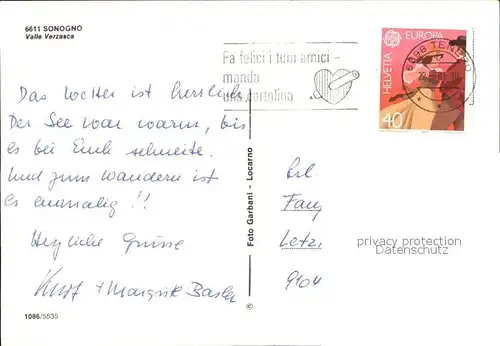 6611 SONOGNO
Valle Verzasca
Fa felici i tuoi amici –
manda
una cartolina
6598 TENERO
CEPT EUROPA
HELVETIA
40
Das Wetter ist herrlich
Der See war warm, bis
es bei Euch schneite.
Und zum Wandern ist
es einmalig !!
Herzliche Grüsse
Kurt + Margrit
Foto Garbani - Locarno
©
Fam
9104
privacy protection
Datenschutz
1086/5535